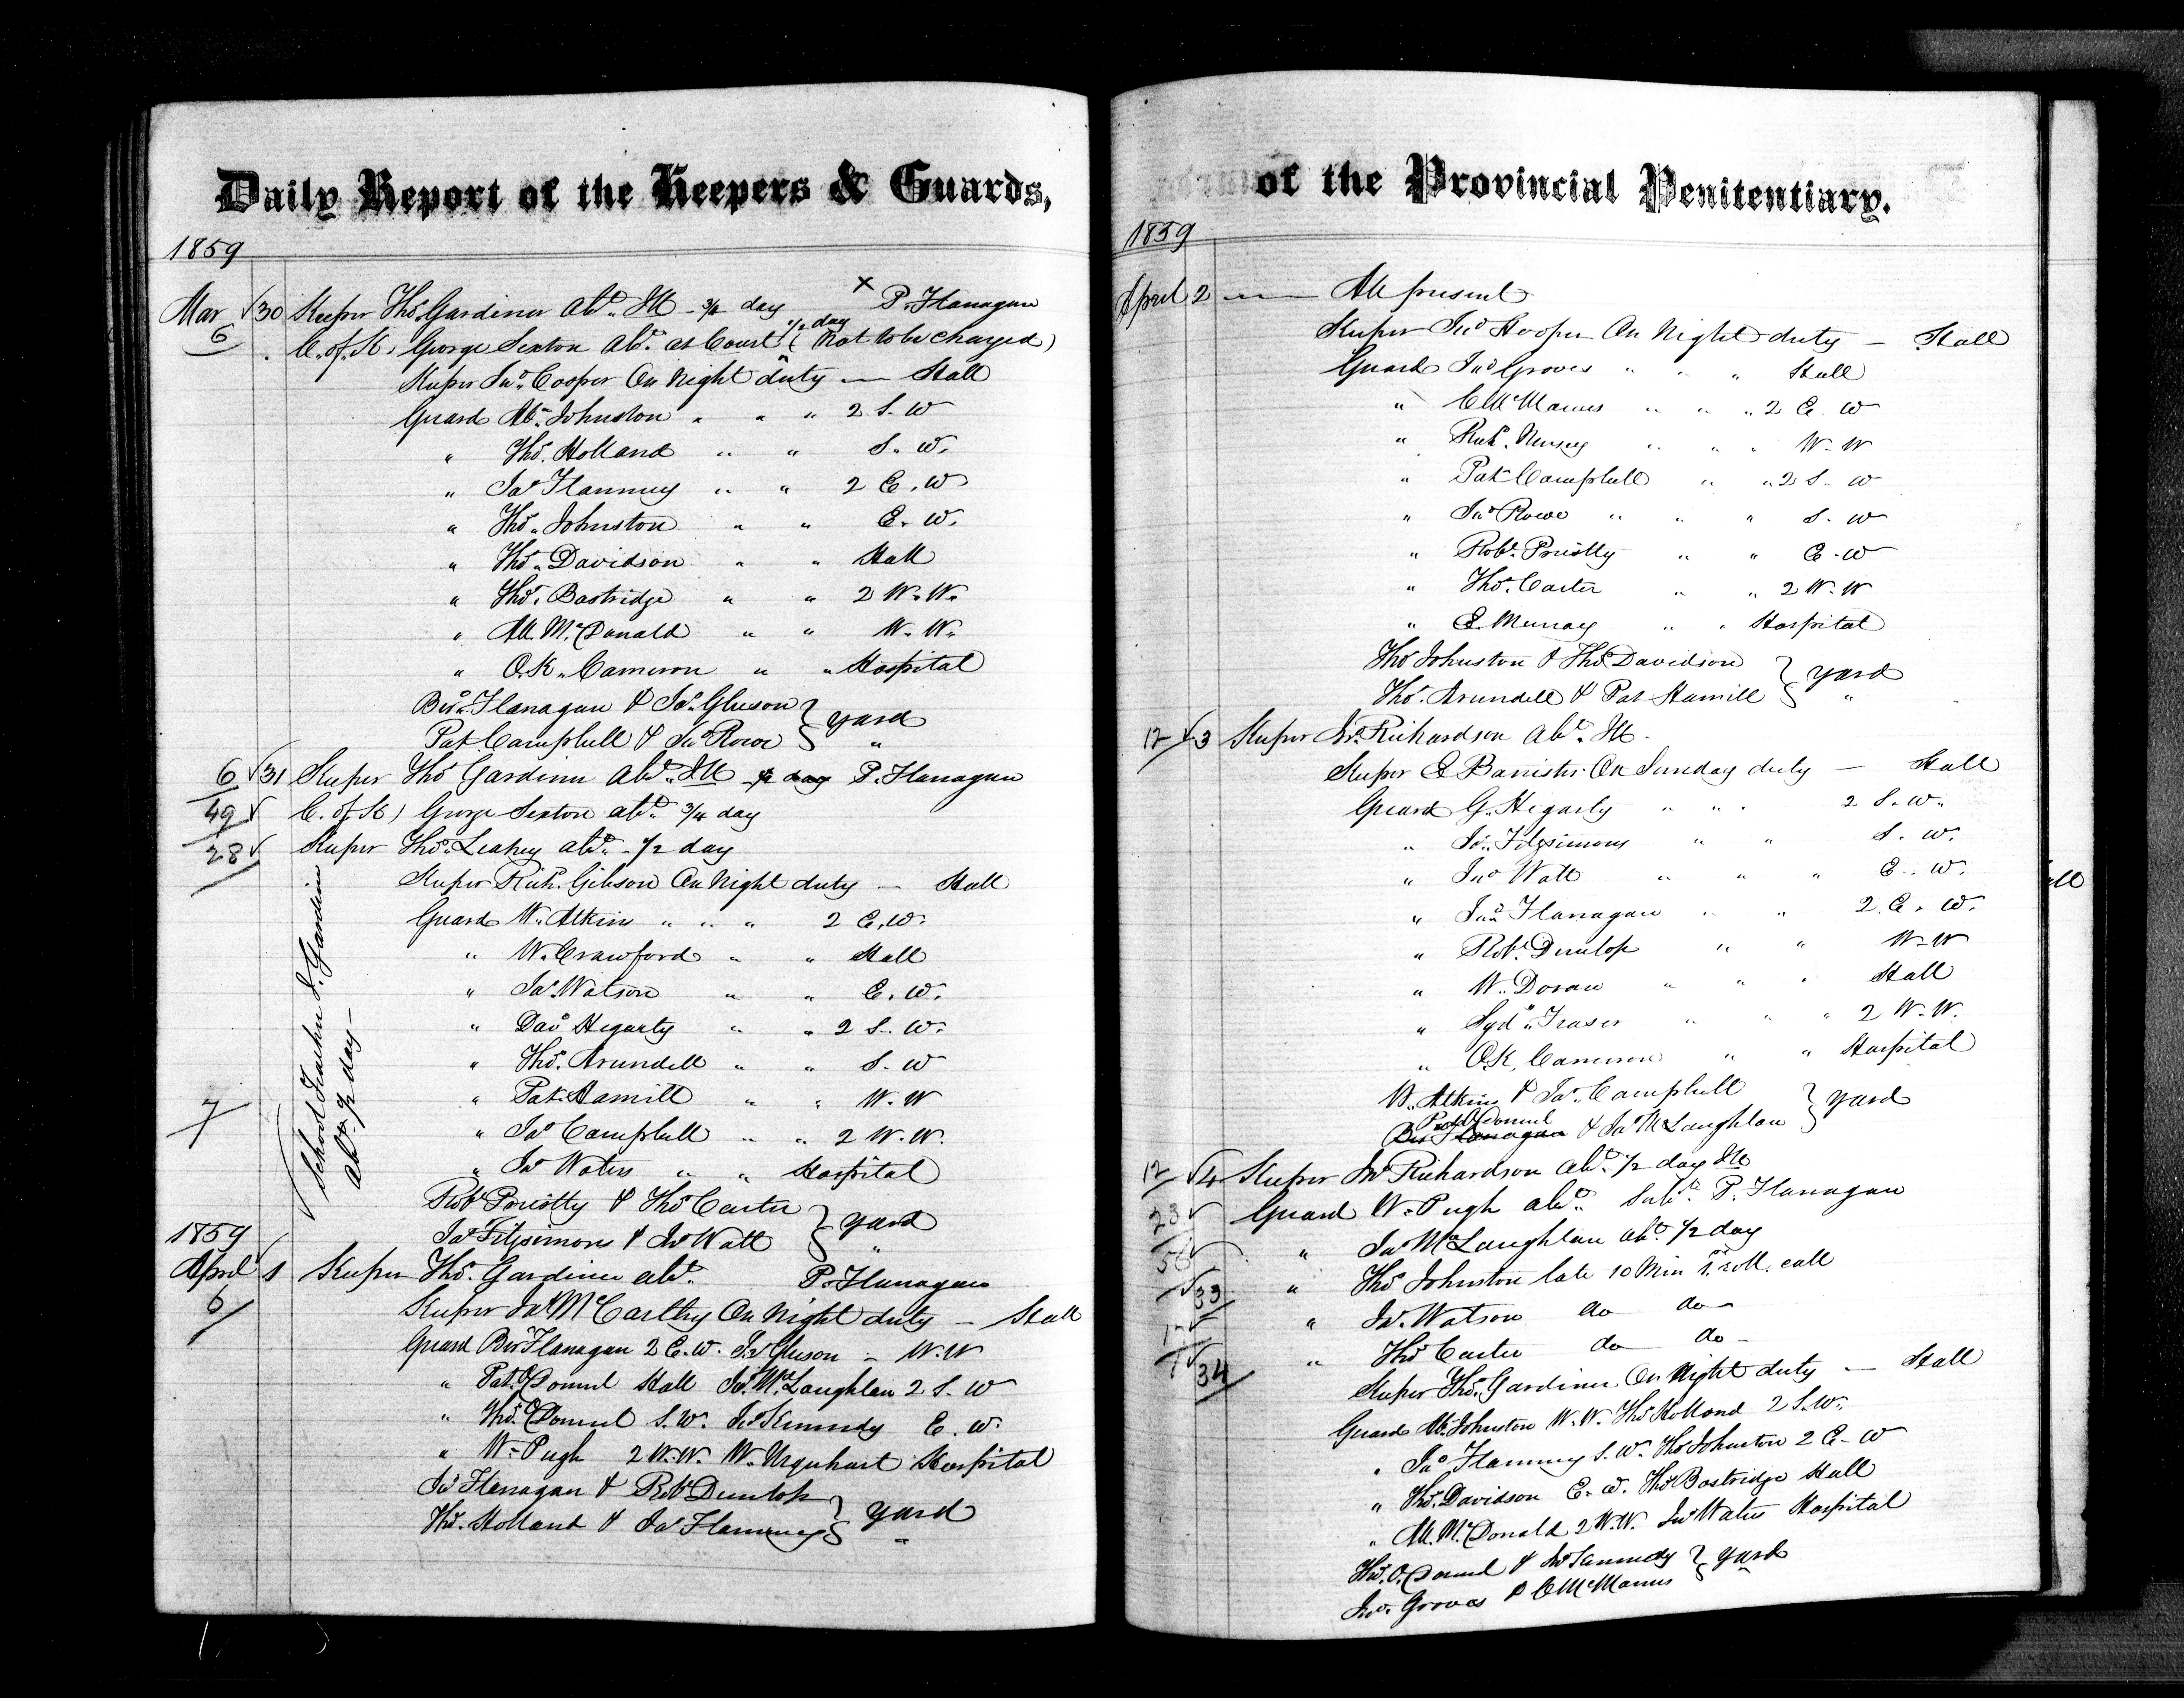 Daily Report of the Keepers & Guards,
1859
Mar 30 Keeper Thos. Gardiner Abt. Ill - 3/4 day P. Flanagan
6 C. of K. George Sexton Abt. at Court 1/2 day (Not to be charged)
Keeper Jno. Cooper On Night duty — Hall
Guard Ab. Johnston " " " 2 S. W
" Thos. Holland " " S. W.
" Jas Flammey " " 2 E. W
" Thos. Johnston " " E. W.
" Thos. Davidson " " Hall
" Thos. Bostridge " " 2 W. W.
" All. McDonald " " W. W.
" O.K. Cameron " " Hospital
Bar. Flanagan & Jas. Gleeson } Yard
Pat Campbell & Jno Rowe } "
6 31 Keeper Thos Gardiner Abt. Ill 1/2 day P. Flanagan
49 C. of K) George Sexton abt. 3/4 day
28 Keeper Thos. Leahey abt. - 1/2 day
School Teacher J. Gardiner
abt. 1/2 day -
7
Keeper Rich. Gibson On Night duty — Hall
Guard W. Atkins " " " 2 E. W.
" W. Crawford " " Hall
" Jas. Watson " " E. W.
" Dav Hegarty " " 2 S. W.
" Thos. Arundell " " S. W
" Pat. Hamill " " W. W
" Jas Campbell " " 2 W. W.
" Jno Waters " " Hospital
Robt Priestly & Thos Carter } Yard
Jas Fitzsimons & Jno Watt } "
1859
April 1 Keeper Thos. Gardiner abt. P. Flanagan
6
Keeper Jas McCarthy On Night duty — Hall
Guard Bar Flanagan 2 E. W. Jas Gleeson - W. W
" Pat. O'Donnel Hall Jas. McLaughlan 2 S. W
" Thos. O'Donnel S. W. Jno Kennedy E. W.
" W. Pugh 2 W. W. W. Urquhart Hospital
Jas Flanagan & Robt Dunlop } Yard
Thos. Holland & Jas Flammey } "
of the Provincial Penitentiary.
1859
April 2 — All present
Keeper Jno Hooper On Night duty — Hall
Guard Jno Groves " " " Hall
" C McManus " " " 2 E. W
" Rich. Nursey " " " W. W
" Pat Campbell " " 2 S. W
" Jno Rowe " " " S. W
" Robt. Priestly " " E. W
" Thos. Carter " " 2 W. W
" E. Murray " " Hospital
Thos Johnston & Thos. Davidson } Yard
Thos. Arundell & Pat Hamill } "
12 3 Keeper Jno. Richardson Abt. Ill -
Keeper E Banister On Sunday duty — Hall
Guard G. Hegarty " " " 2 S. W.
" Jas. Fitzsimons " " S. W.
" Jno Watt " " " E. W.
" Jas. Flanagan " " 2. E. W.
" Robt. Dunlop " " W. W
" W. Doran " " " Hall
" Syd. Fraser " " " 2 W. W.
" O.K. Cameron " " Hospital
W. Atkins & Jas. Campbell } Yard
Pat O'Donnel
Bar Flanagan & Jas McLaughlan
12 4 Keeper Jno Richardson abt. 1/2 day Ill
23 Guard W. Pugh abt. Subt. P. Flanagan
" Jas McLaughlan abt. 1/2 day
33 " Thos Johnston late 10 Min roll call
" Jas. Watson do do —
34 " Thos Carter do do -
Keeper Thos. Gardiner On Night duty — Hall
Guard Ab. Johnston W. W. Thos Holland 2 S. W.
" Jas Flammey S. W. Thos Johnston 2 E. W
" Thos. Davidson E. W. Thos Bostridge Hall
" All. McDonald 2 W. W. Jno Waters Hospital
Thos. O'Donnel & Jno Kennedy } Yard
Jno. Groves & C McManus